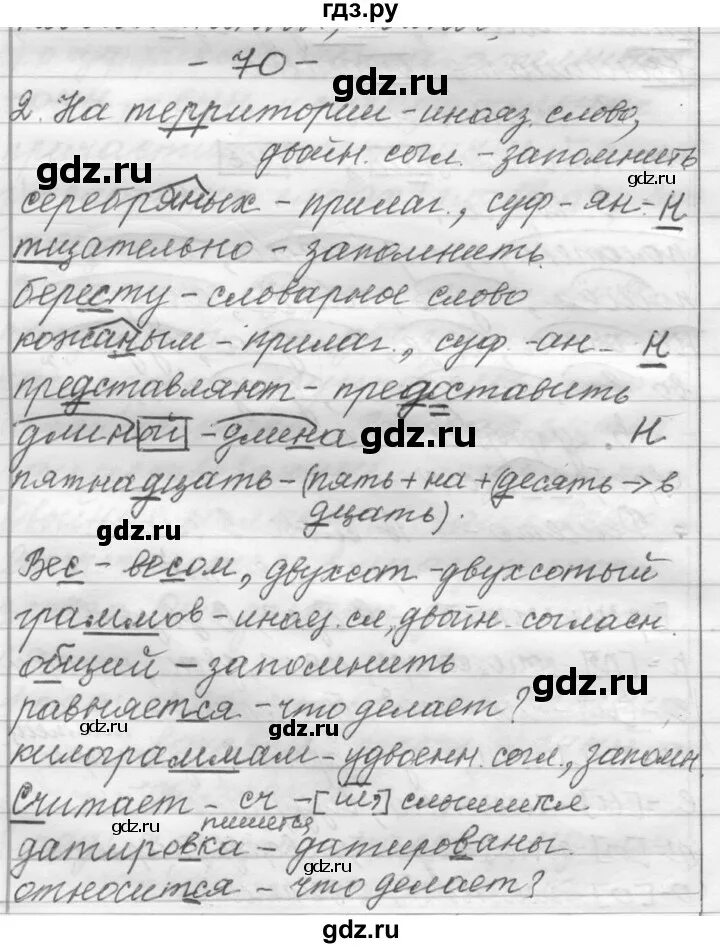 гдз.ру
- 70 -
gdz.ru
2. На территории - инояз. слово,
двойн. согл. - запомнить
gdz.ru gdz.ru
серебряных - прилаг., суф -ян- Н
тщательно - запомнить.
gdz.ru
бересту - словарное слово
gdz.ru
кожаным - прилаг., суф -ан- Н
представляют - предоставить
длиной - длина Н
gdz.ru
пятнадцать - (пять + на + (десять → в
дцать).
gdz.ru
Вес - весом, двухсот - двухсотый
gdz.ru
граммов - инояз. сл, двойн. согласн.
общий - запомнить
gdz.ru
равняется - что делает?
gdz.ru
килограммам - удвоенн. согл., запомн.
gdz.ru
Считает - сч - [щ'] слышится
gdz.ru пишется
датировка - датированы.
относится - что делает?
gdz.ru
gdz.ru